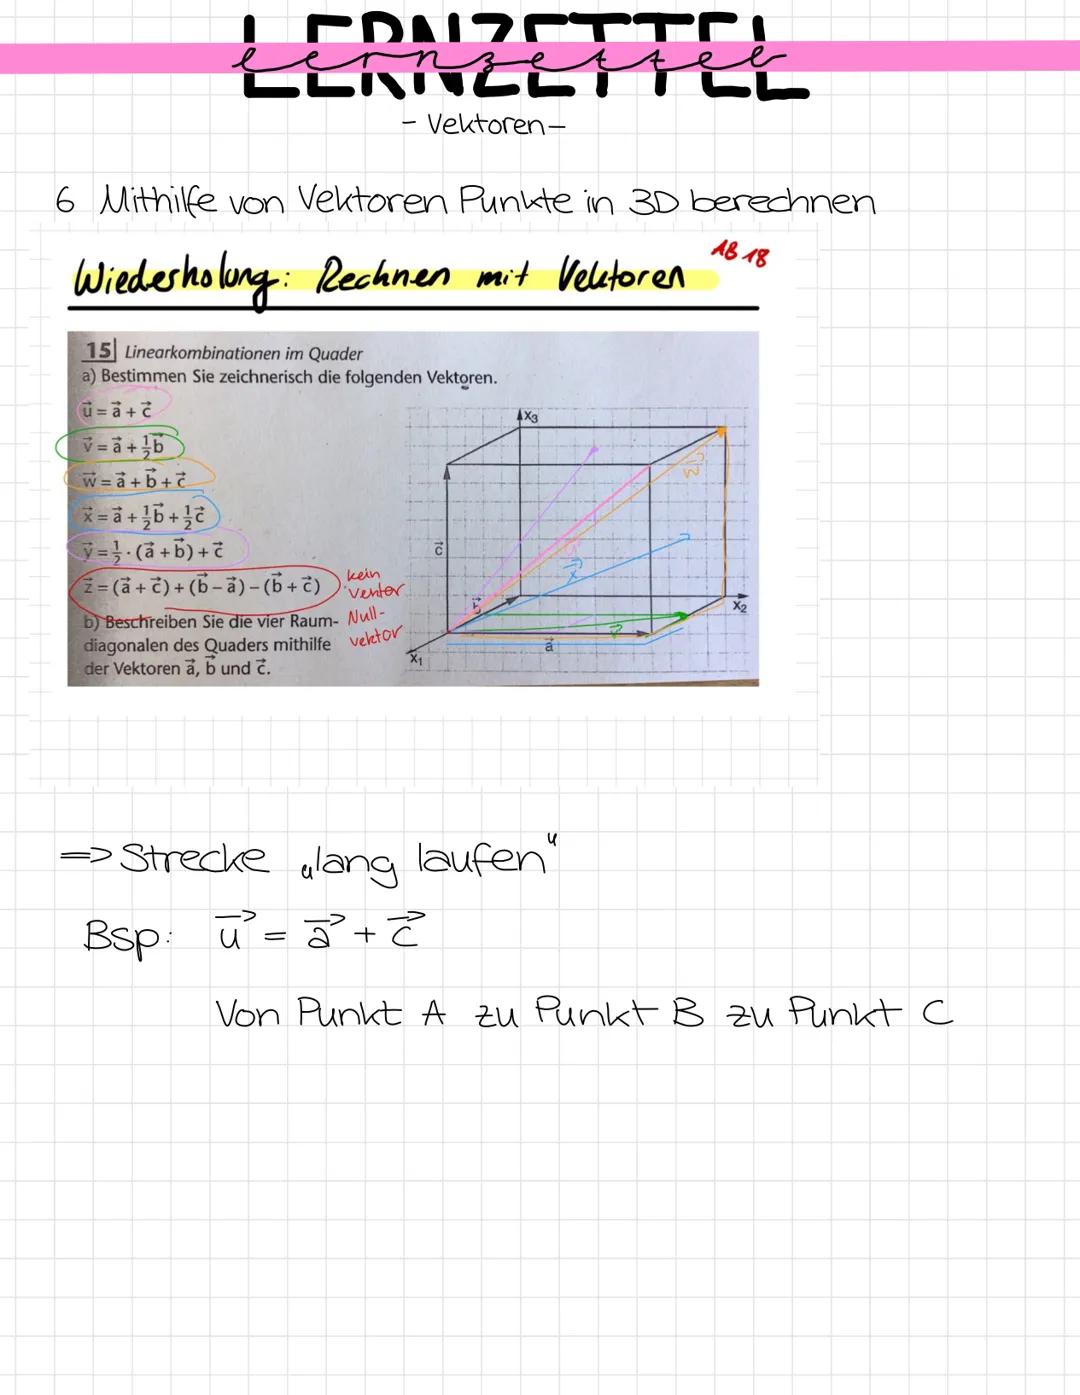 LERNZETTEL
lernzettel
- Vektoren -
6 Mithilfe von Vektoren Punkte in 3D berechnen
AB 18
Wiederholung: Rechnen mit Vektoren
15 Linearkombinationen im Quader
a) Bestimmen Sie zeichnerisch die folgenden Vektoren.
u⃗ = a⃗ + c⃗
v⃗ = a⃗ + ½b⃗
w⃗ = a⃗ + b⃗ + c⃗
x⃗ = a⃗ + ½b⃗ + ½c⃗
y⃗ = ½ · (a⃗ + b⃗) + c⃗
z⃗ = (a⃗ + c⃗) + (b⃗ − a⃗) − (b⃗ + c⃗)
kein
Vektor
Null-
vektor
b) Beschreiben Sie die vier Raum-
diagonalen des Quaders mithilfe
der Vektoren a⃗, b⃗ und c⃗.
x₃
w⃗
c⃗
x⃗
b⃗
x₂
v⃗
a⃗
x₁
=> Strecke „lang laufen"
Bsp: u⃗ = a⃗ + c⃗
Von Punkt A zu Punkt B zu Punkt C